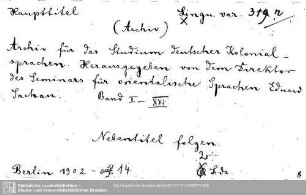 Haupttitel Lingu. var. 319 n
(Archiv)
Archiv für das Studium deutscher Kolonial-
sprachen. Herausgegeben von dem Direktor
des Seminars für orientalische Sprachen Eduard
Sachau. Band II – XVI
Nebentitel folgen.
Berlin 1902 – 14 Bde.
Sächsische Landesbibliothek -
Staats- und Universitätsbibliothek Dresden